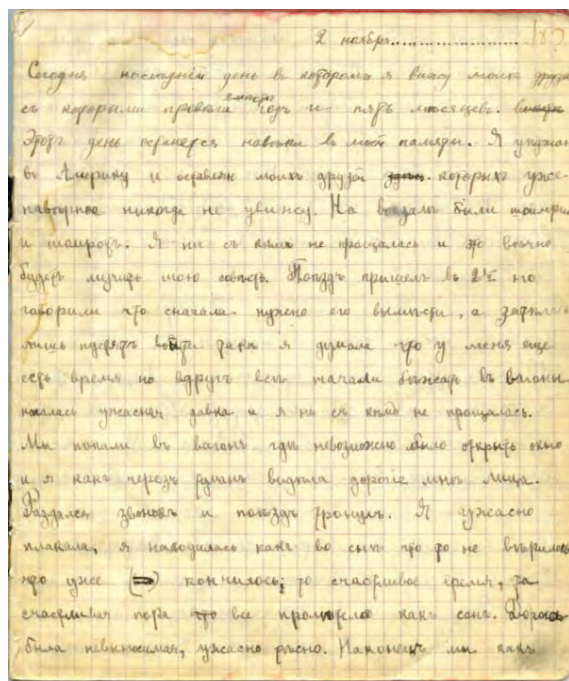 2 ноября......................
Сегодня послѣдній день въ которомъ я вижу моихъ друзей
съ которыми провела вмѣстѣ годъ и пять мѣсяцевъ.
Этотъ день останется навѣки въ моей памяти. Я уѣзжаю
въ Америку и оставляю моихъ друзей которыхъ уже
навѣрное никогда не увижу. На вокзалѣ были
и Я ни съ кѣмъ не прощалась и это вѣчно
будетъ мучить мою совѣсть. Поѣздъ пришелъ въ но
говорили что сначала нужно его вымести, а затѣмъ
лишь пустятъ войти такъ я думала что у меня еще
есть время но вдругъ всѣ начали бѣжать въ вагоны
началась ужасная давка и я ни съ кѣмъ не прощалась.
Мы попали въ вагонъ гдѣ невозможно было открыть окно
и я какъ черезъ туманъ видѣла дорогіе мнѣ лица.
Раздался звонокъ и поѣздъ тронулъ. Я ужасно
плакала, я находилась какъ во снѣ что то не вѣрилось
что уже кончилось; то счастливое время, та
счастливая пора что все промѣтело какъ сонъ.
была невыносимая, ужасно тѣсно. Наконецъ мы какъ